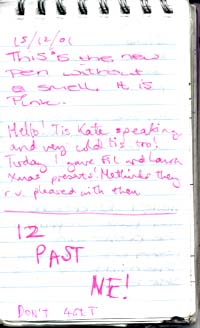 15/12/01
This is the new
Pen without
a smell. It is
Pink.
Hello! Tis Kate speaking
and very cold tis too!
Today I gave Fil and Laura
Xmas presents! Methinks they
r v. pleased with them
12
PAST
NE!
DON'T 4GET